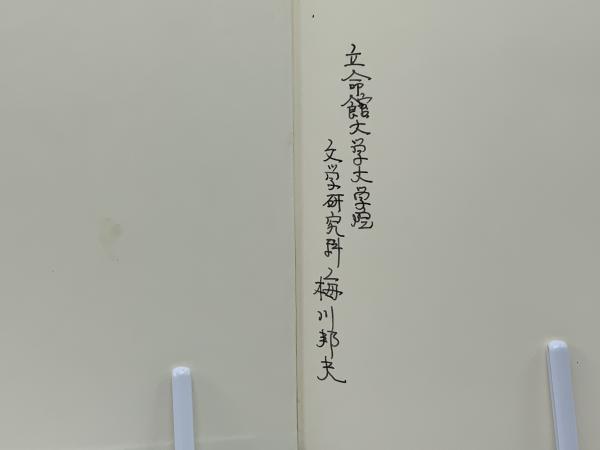 立命館大学大学院
文学研究科 梅川邦夫